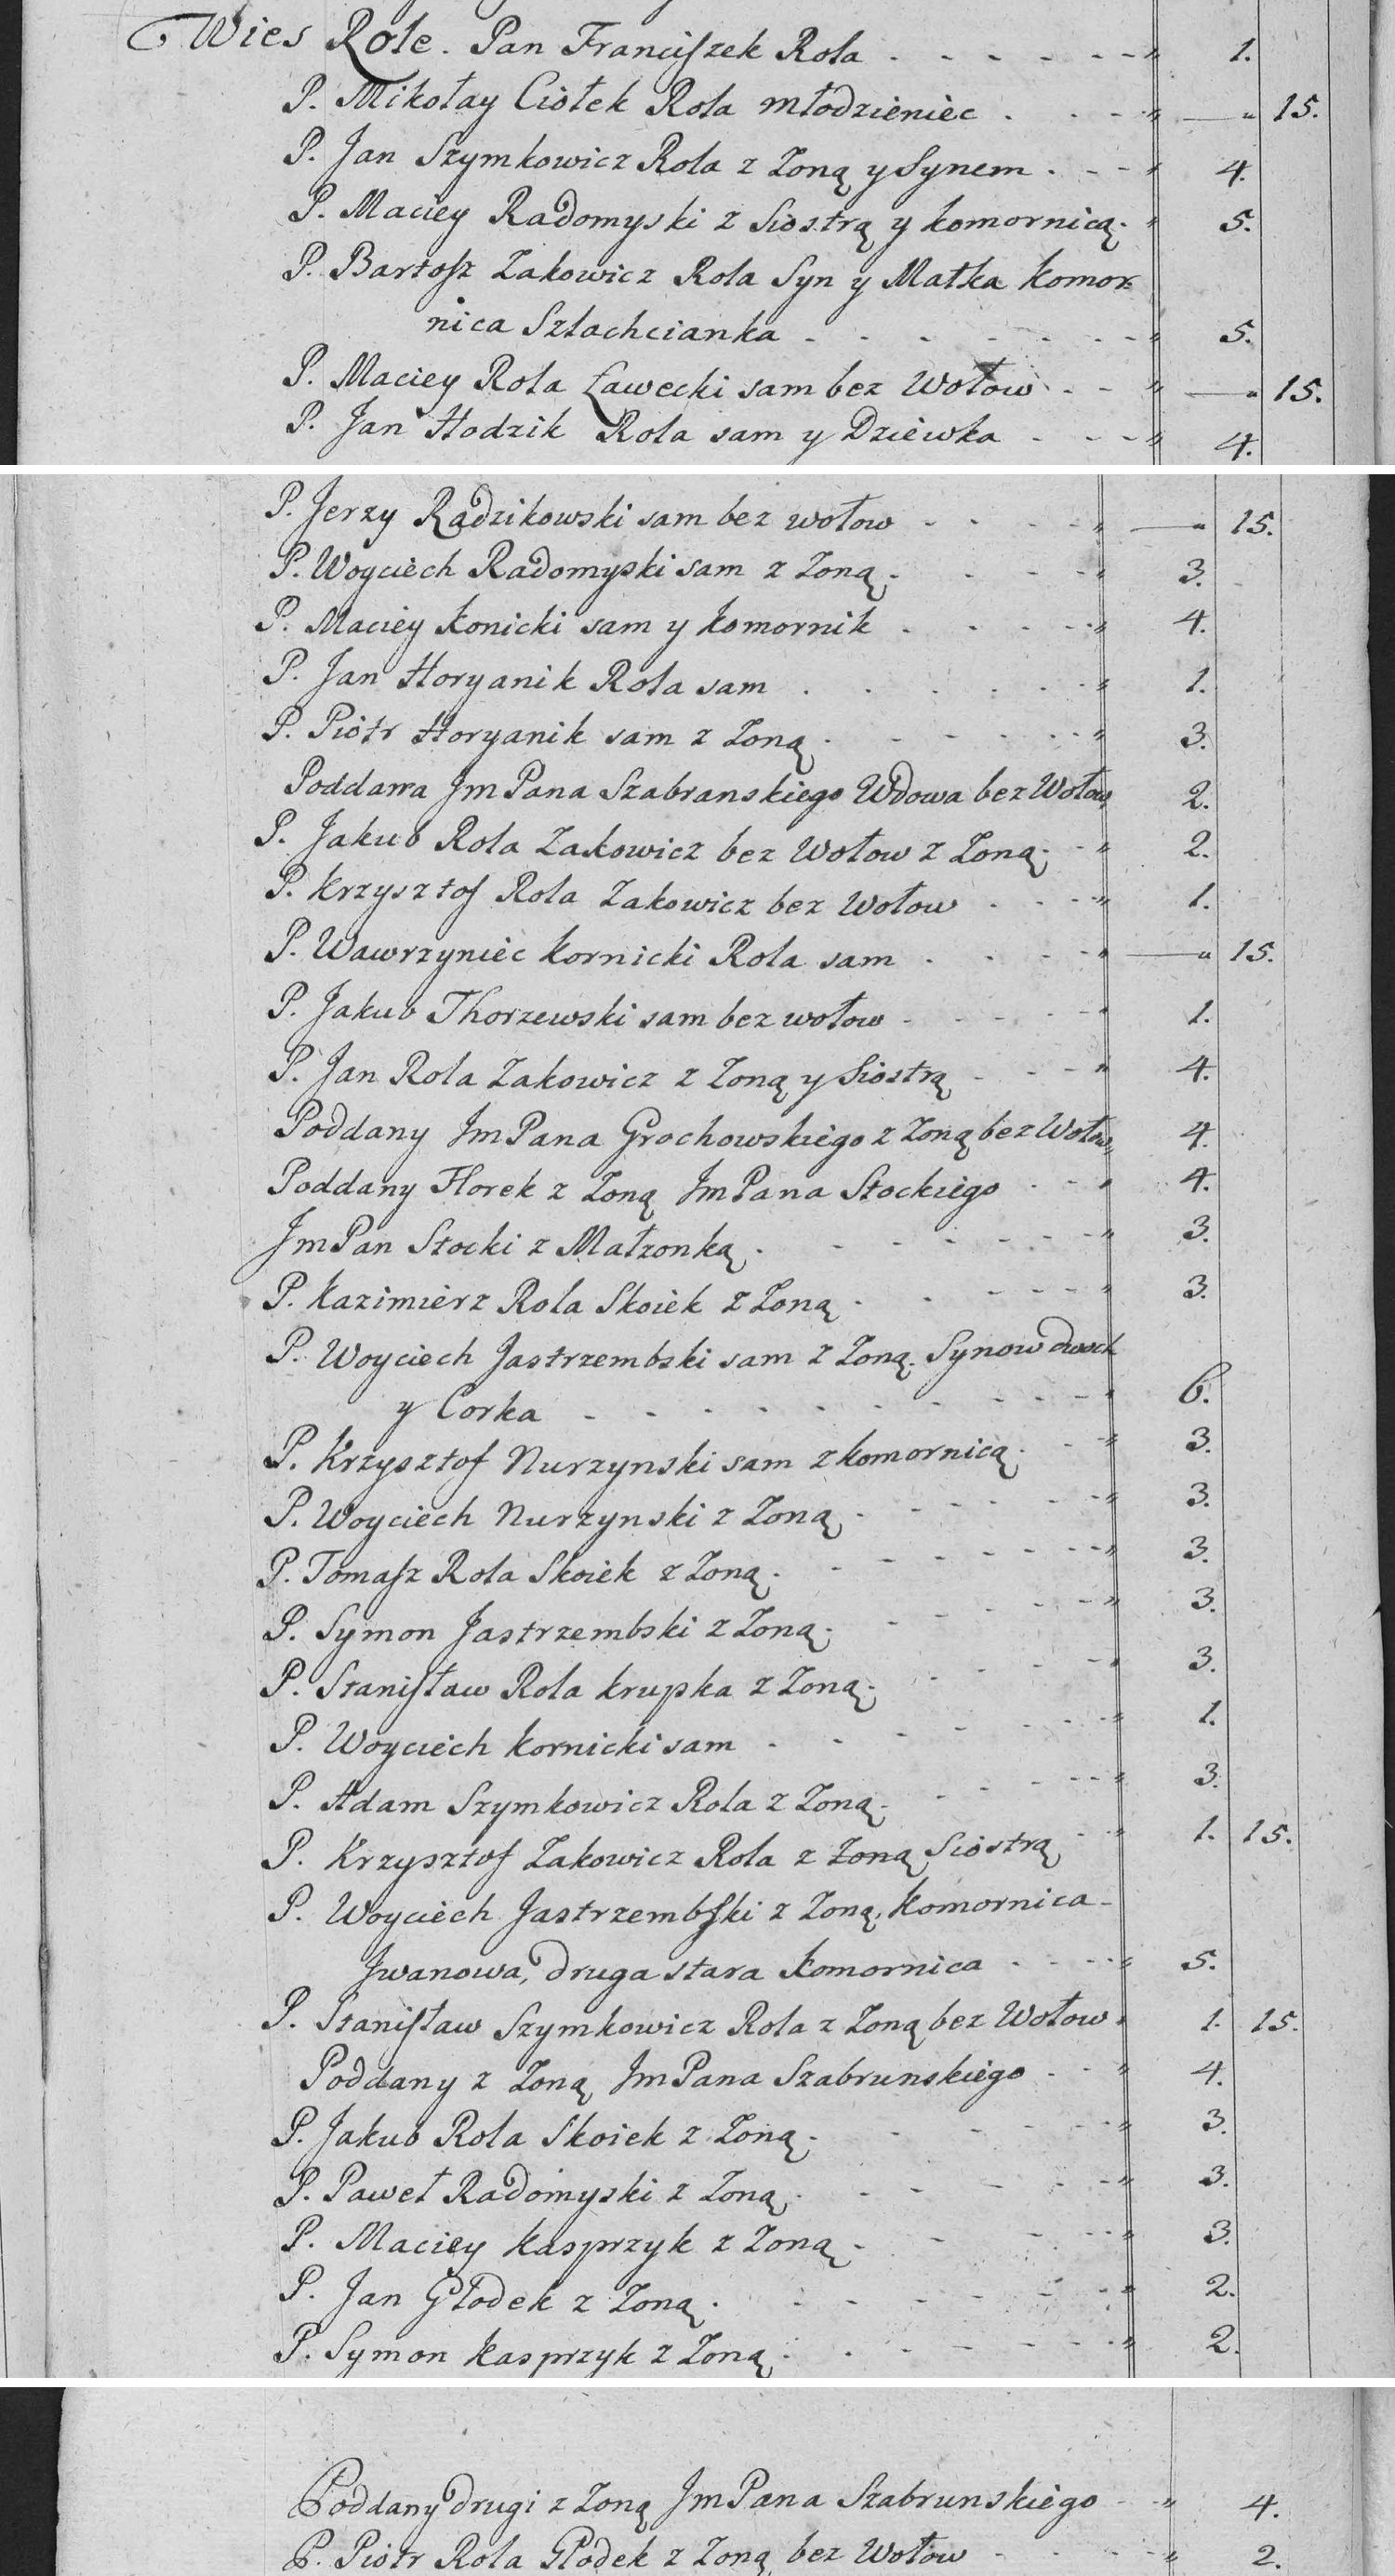 Wies Role. Pan Franciszek Rola . - - - - - " 1.
P. Mikołay Ciołek Rola młodzieniec . . - " — " 15.
P. Jan Szymkowicz Rola z Zoną y Synem . - - " 4.
P. Maciey Radomyski z Siostrą y komornicą. " 5.
P. Bartosz Zakowicz Rola Syn y Matka komor=
nica Szlachcianka - - - - - - - " 5.
P. Maciey Rola Ławecki sam bez Wołow - - " — " 15.
P. Jan Hodzik Rola sam y Dziewka - - - " 4.
P. Jerzy Radzikowski sam bez wołow - - - - " — " 15.
P. Woyciech Radomyski sam z Zoną . - - - " 3.
P. Maciey Konicki sam y komornik . - - - " 4.
P. Jan Horyanik Rola sam . . . . - - " 1.
P. Piotr Horyanik sam z Zoną . - - - - - " 3.
Poddana Jm Pana Szabranskiego Wdowa bez Wołow 2.
P. Jakub Rola Zakowicz bez Wołow z Zoną. - " 2.
P. Krzysztof Rola Zakowicz bez Wołow . - - " 1.
P. Wawrzyniec Kornicki Rola sam . - - - " — " 15.
P. Jakub Thorzewski sam bez wołow - - - - " 1.
P. Jan Rola Zakowicz z Zoną y Siostrą - - - " 4.
Poddany Jm Pana Grochowskiego z Zoną bez Wołow " 4.
Poddany Florek z Zoną Jm Pana Stockiego - - " 4.
Jm Pan Stocki z Małzonką . - - - - - - " 3.
P. Kazimierz Rola Skoiek z Zoną . - - - - " 3.
P. Woyciech Jastrzembski sam z Zoną. Synow dwoch
y Corka - - - - - - - - - " 6.
P. Krzysztof Nurzynski sam z komornicą . - " 3.
P. Woyciech Nurzynski z Zoną . - - - - " 3.
P. Tomasz Rola Skoiek z Zoną . - - - - - " 3.
P. Symon Jastrzembski z Zoną . - - - - " 3.
P. Stanisław Rola Krupka z Zoną . - - - " 3.
P. Woyciech Kornicki sam . - - - - - " 1.
P. Adam Szymkowicz Rola z Zoną . - - - " 3.
P. Krzysztof Zakowicz Rola z Zoną Siostrą - " 1. 15.
P. Woyciech Jastrzembski z Zoną, Komornica -
Jwanowa, druga stara Komornica . - - " 5.
P. Stanisław Szymkowicz Rola z Zoną bez Wołow " 1. 15.
Poddany z Zoną Jm Pana Szabrunskiego . - " 4.
P. Jakub Rola Skoiek z Zoną . - - - - " 3.
P. Paweł Radomyski z Zoną . - - - - - " 3.
P. Maciey Kasprzyk z Zoną . - - - - " 3.
P. Jan Głodek z Zoną . - - - - - " 2.
P. Symon Kasprzyk z Zoną . . - - - - " 2.
Poddany drugi z Zoną Jm Pana Szabrunskiego - - " 4.
P. Piotr Rola Głodek z Zoną bez Wołow - - - " 2.